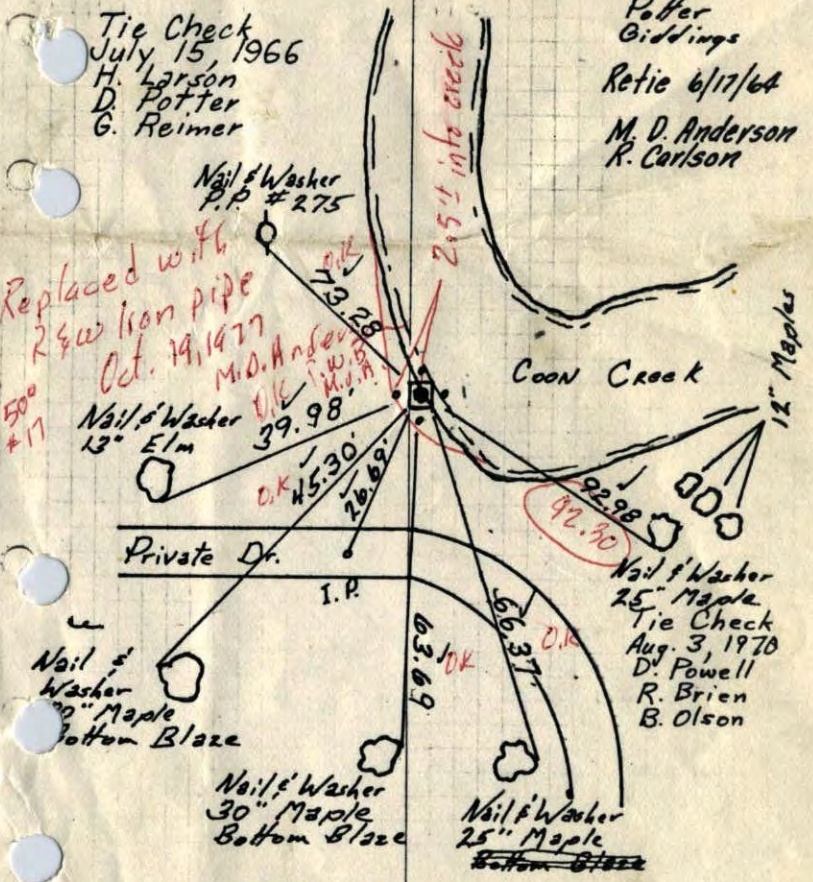 Tie Check
July 15, 1966
H. Larson
D. Potter
G. Reimer
Potter
Giddings
Retie 6/17/64
M. D. Anderson
R. Carlson
2.5'± into creek
Nail & Washer
P.P. #275
O.K
73.28
Replaced with
Iron pipe
Oct. 19, 1977
M.D. Anders
O.K
Coon Creek
12" Maples
Nail & Washer
13" Elm
39.98'
O.K
45.30'
26.69'
92.98
92.30
Private Dr.
I.P.
Nail & Washer
25" Maple
Tie Check
Aug. 3, 1970
D. Powell
R. Brien
B. Olson
63.69
OK
66.37'
O.K
Nail &
Washer
Maple
Bottom Blaze
Nail & Washer
30" Maple
Bottom Blaze
Nail & Washer
25" Maple
Bottom Blaze